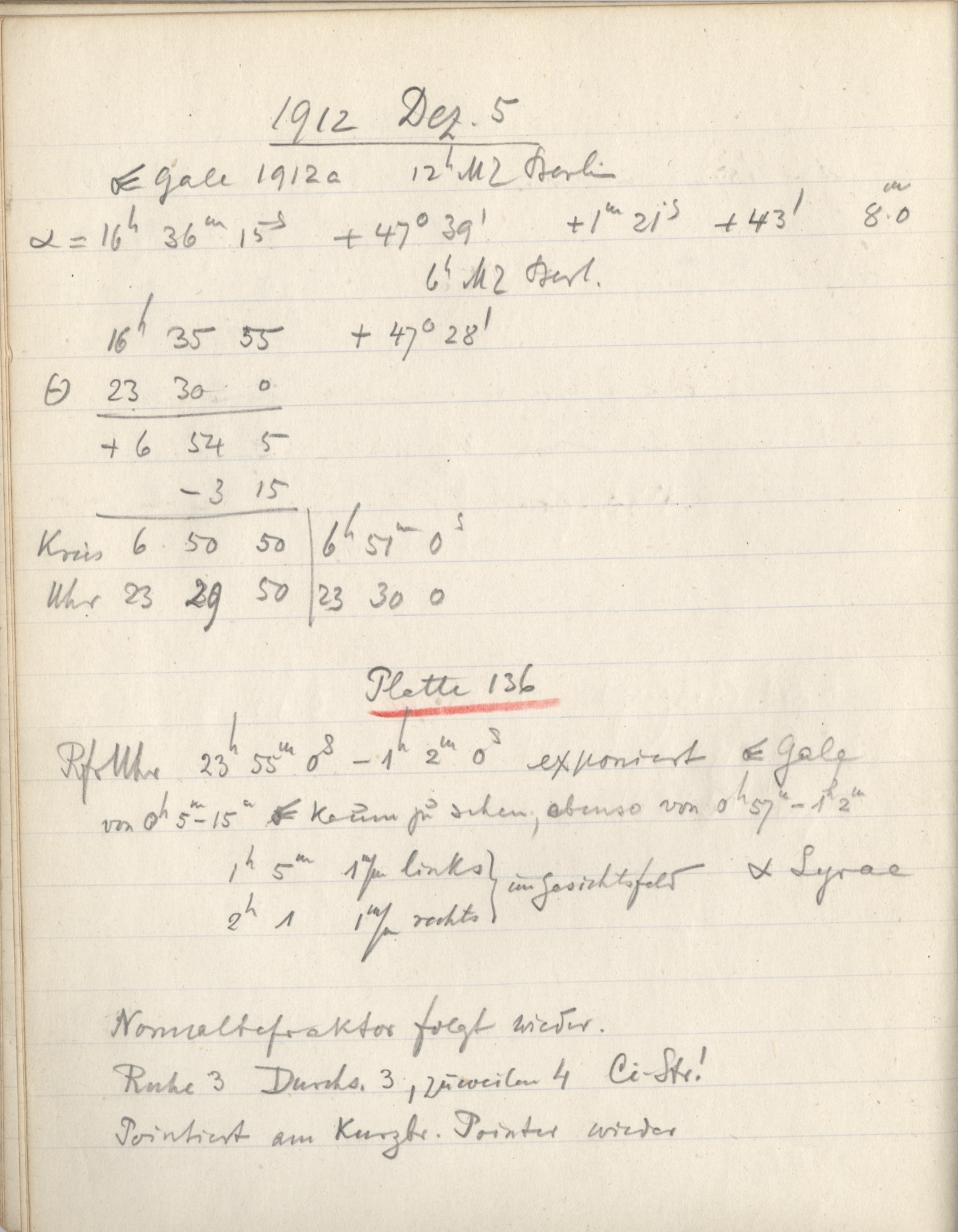 1912 Dez. 5
☄ Gale 1912a 12ʰ MZ Berlin
α = 16ʰ 36ᵐ 15ˢ + 47° 39' +1ᵐ 21ˢ +43' 8.0ᵐ
6ʰ MZ Berl.
16ʰ 35 55 + 47° 28'
Θ 23 30 0
+ 6 54 5
- 3 15
Kreis 6 50 50 | 6ʰ 51ᵐ 0ˢ
Uhr 23 29 50 | 23 30 0
Platte 136
Rfr Uhr 23ʰ 55ᵐ 0ˢ - 1ʰ 2ᵐ 0ˢ exponiert ☄ Gale
von 0ʰ 5ᵐ-15ᵐ ☄ kaum zu sehen, ebenso von 0ʰ 57ᵐ - 1ʰ 2ᵐ
1ʰ 5ᵐ 1ᵐ/ₘ links } im Gesichtsfeld α Lyrae
2ʰ 1 1ᵐ/ₘ rechts
Normalrefraktor folgt wieder.
Ruhe 3 Durchs. 3, zuweilen 4 Ci-Str!
Pointiert am Kurzbr. Pointer wieder